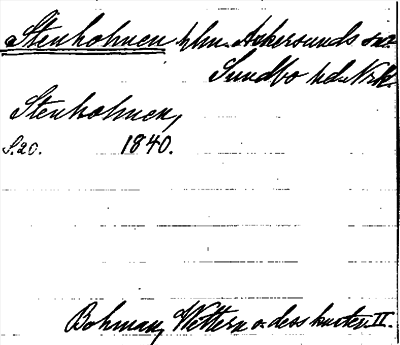 Stenholmen hlm. Askersunds sn.
Sundbo hd. Nrk.
Stenholmen,
S. 20. 1840.
Bohman, Wettern o. dess kuster II.